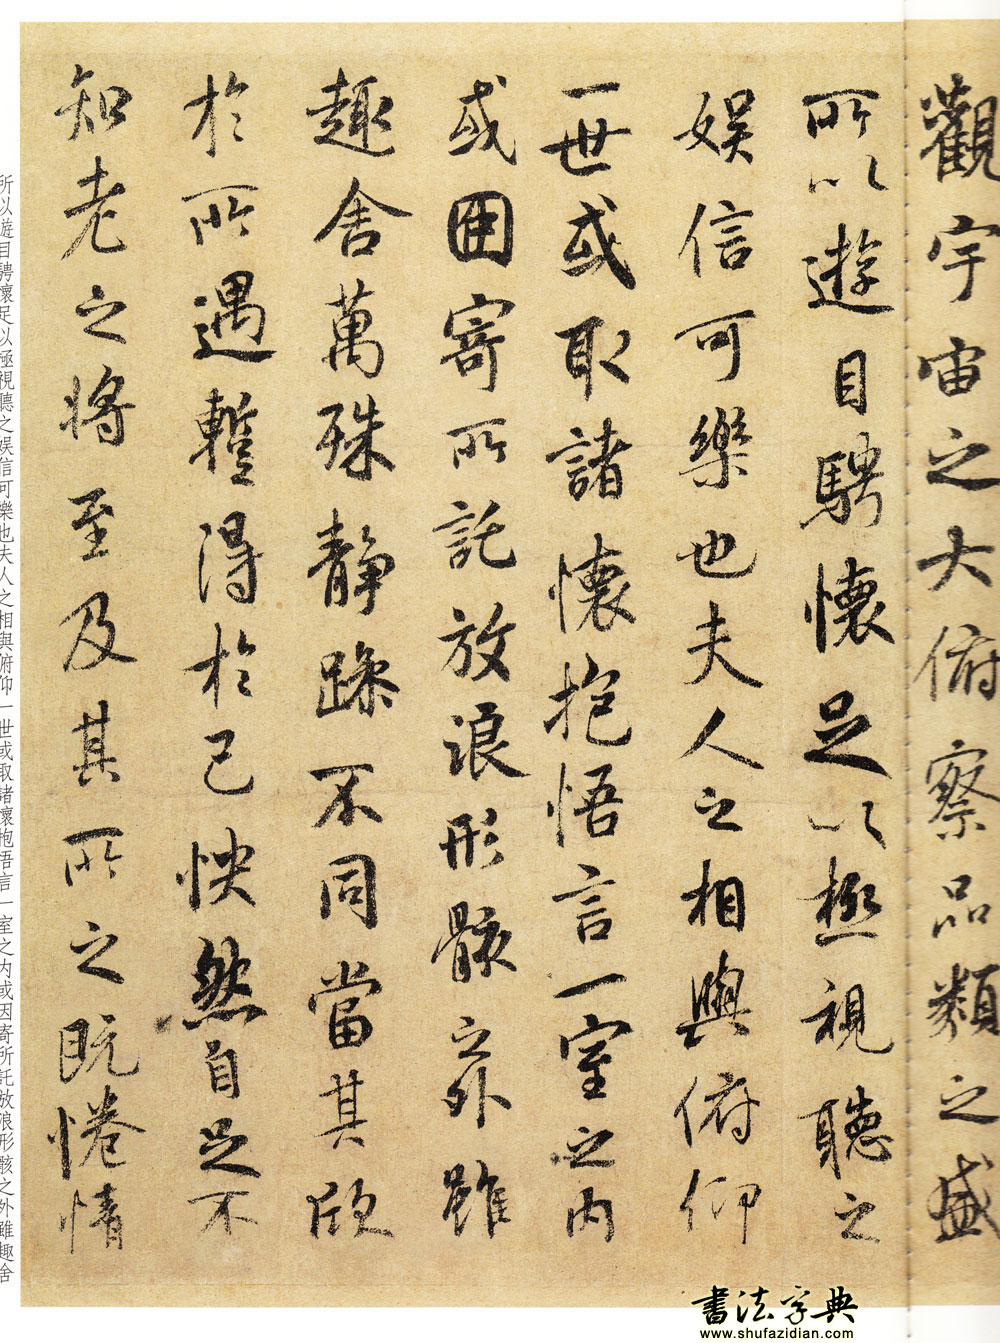 觀宇宙之大俯察品類之盛
所以遊目騁懷足以極視聽之
娛信可樂也夫人之相與俯仰
一世或取諸懷抱悟言一室之內
或因寄所託放浪形骸之外雖
趣舍萬殊靜躁不同當其欣
於所遇蹔得於己怏然自足不
知老之將至及其所之既惓情
所以遊目騁懷足以極視聽之娱信可樂也夫人之相與俯仰一世或取諸懷抱悟言一室之内或因寄所託放浪形骸之外雖趣舍
书法字典
www.shufazidian.com